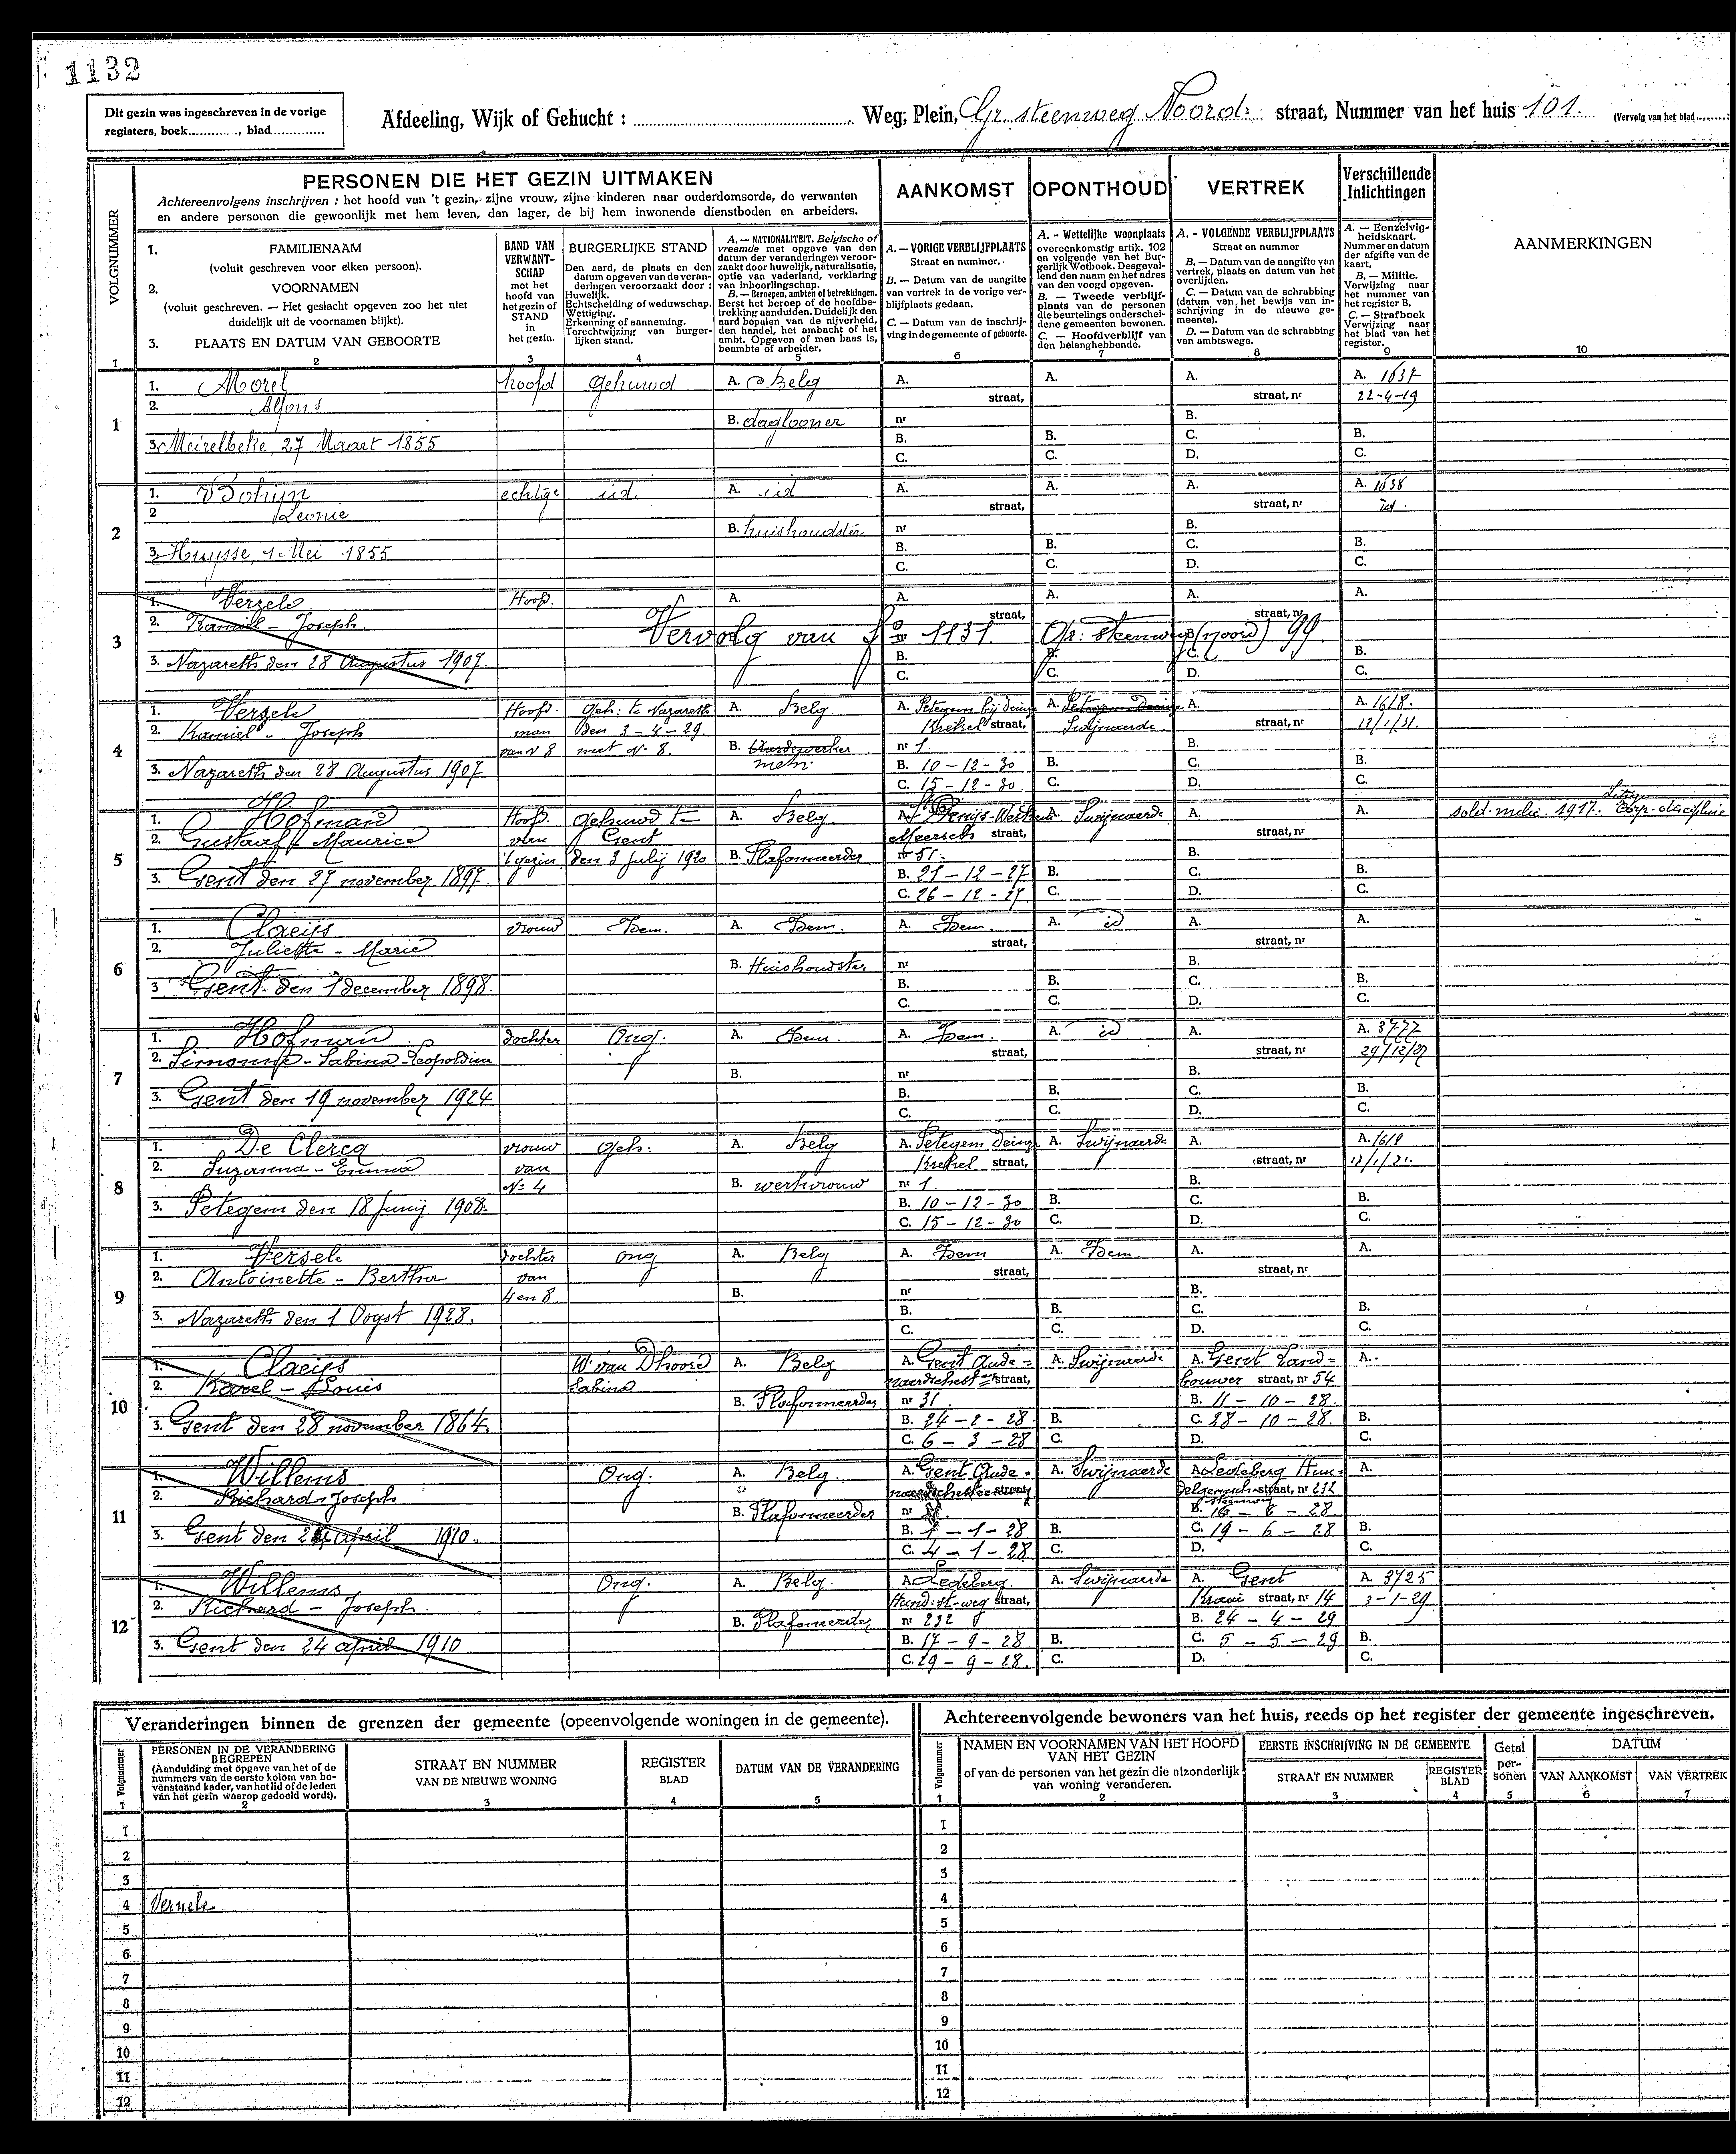 1132
Dit gezin was ingeschreven in de vorige
registers, boek.........., blad.............
Afdeeling, Wijk of Gehucht : ............ Weg, Plein, Gr. steenweg Noord: straat, Nummer van het huis 101. (Vervolg van het blad........
VOLGNUMMER
PERSONEN DIE HET GEZIN UITMAKEN
Achtereenvolgens inschrijven : het hoofd van 't gezin, zijne vrouw, zijne kinderen naar ouderdomsorde, de verwanten
en andere personen die gewoonlijk met hem leven, dan lager, de bij hem inwonende dienstboden en arbeiders.
AANKOMST
OPONTHOUD
VERTREK
Verschillende
Inlichtingen
AANMERKINGEN
1. FAMILIENAAM
(voluit geschreven voor elken persoon).
2. VOORNAMEN
(voluit geschreven. — Het geslacht opgeven zoo het niet
duidelijk uit de voornamen blijkt).
3. PLAATS EN DATUM VAN GEBOORTE
BAND VAN
VERWANT-
SCHAP
met het
hoofd van
het gezin of
STAND
in
het gezin.
BURGERLIJKE STAND
Den aard, de plaats en den
datum opgeven van de veran-
deringen veroorzaakt door :
Huwelijk.
Echtscheiding of weduwschap.
Wettiging.
Erkenning of aanneming.
Terechtwijzing van burger-
lijken stand.
A. — NATIONALITEIT. Belgische of
vreemde met opgave van den
datum der veranderingen veroor-
zaakt door huwelijk, naturalisatie,
optie van vaderland, verklaring
van inboorlingschap.
B. — Beroepen, ambten of betrekkingen.
Eerst het beroep of de hoofdbe-
trekking aanduiden. Duidelijk den
aard bepalen van de nijverheid,
den handel, het ambacht of het
ambt. Opgeven of men baas is,
beambte of arbeider.
A. — VORIGE VERBLIJFPLAATS
Straat en nummer.
B. — Datum van de aangifte
van vertrek in de vorige ver-
blijfplaats gedaan.
C. — Datum van de inschrij-
ving in de gemeente of geboorte.
A. - Wettelijke woonplaats
overeenkomstig artik. 102
en volgende van het Bur-
gerlijk Wetboek. Desgeval-
lend den naam en het adres
van den voogd opgeven.
B. — Tweede verblijf-
plaats van de personen
die beurtelings onderschei-
dene gemeenten bewonen.
C. — Hoofdverblijf van
den belanghebbende.
A. - VOLGENDE VERBLIJFPLAATS
Straat en nummer
B. — Datum van de aangifte van
vertrek, plaats en datum van het
overlijden.
C. — Datum van de schrabbing
(datum van het bewijs van in-
schrijving in de nieuwe ge-
meente).
D. — Datum van de schrabbing
van ambtswege.
A. — Eenzelvig-
heidskaart.
Nummer en datum
der afgifte van de
kaart.
B. — Militie.
Verwijzing naar
het nummer van
het register B.
C. — Strafboek
Verwijzing naar
het blad van het
register.
1 2 3 4 5 6 7 8 9 10
1
1. Morel hoofd gehuwd A. Belg A. A. A. A. 1637
2. Alfons straat, straat, nr 22-4-19
B. daglooner nr B.
3. Meirelbeke, 27 Maart 1855 B. B. C. B.
C. C. D. C.
2
1. Bohijn echtge id. A. id A. A. A. A. 1638
2 Leonie straat, straat, nr id.
B. huishoudster nr B.
3. Huysse, 1 Mei 1855 B. B. C. B.
C. C. D. C.
3
1. Versele Hoofd. A. A. A. A. A.
2. Kamiel - Joseph. straat, straat, nr
Vervolg van fo 1131 Gr: steenweg (noord) 99
3. Nazareth den 28 Augustus 1907. B. B. C. B.
C. C. D. C.
4
1. Versele Hoofd. Geh: te Nazareth A. Belg. A. Petegem bij Deinze A. Petegem Deinze A. A. 1618.
2. Kamiel - Joseph man den 3 - 4 - 29. Krekel straat, Swijnaarde. straat, nr 12/1/31.
van N 8 met N. 8. B. Aardewerker nr 1. B.
metr.
3. Nazareth den 28 Augustus 1907 B. 10 - 12 - 30 B. C. B.
C. 15 - 12 - 30 C. D. C.
5
1. Hofman Hoofd. gehuwd te A. Belg. A. St Denijs-Westrem A. Swijnaarde A. A. sold. milic. 1917.
2. Gustaaf - Maurice van Gent Meersch straat, straat, nr
't gezin den 3 Julij 1920 B. Plafonneerder nr 51. B.
3. Gent den 27 november 1897. B. 21 - 12 - 27 B. C. B.
C. 26 - 12 - 27. C. D. C.
6
1. Claeijs vrouw Idem. A. Idem. A. Idem. A. id A. A.
2. Juliette - Marie straat, straat, nr
B. Huishoudster nr B.
3 Gent den 1 december 1898. B. B. C. B.
C. C. D. C.
7
1. Hofman dochter Ong. A. Idem. A. Idem. A. id A. A. 3777
2. Simonne - Sabina - Leopoldine straat, straat, nr 29/12/27
B. nr B.
3. Gent den 19 november 1924 B. B. C. B.
C. C. D. C.
8
1. De Clercq vrouw Geh: A. Belg A. Petegem Deinze A. Swijnaarde A. A. 1619
2. Suzanna - Emma van Krekel straat, straat, nr 12/1/31.
No 4 B. werkvrouw nr 1. B.
3. Petegem den 18 Junij 1908. B. 10 - 12 - 30 B. C. B.
C. 15 - 12 - 30 C. D. C.
9
1. Versele dochter ong A. Belg A. Idem A. Idem. A. A.
2. Antoinette - Bertha van straat, straat, nr
4 en 8 B. nr B.
3. Nazareth den 1 Oogst 1928. B. B. C. B.
C. C. D. C.
10
1. Claeijs Wr van Dhoore A. Belg A. Gent Aude = A. Swijnaarde A. Gent Land= A.
2. Karel - Louis Sabina naardschest straat, bouwer straat, nr 54
B. Plafonneerder nr 31. B. 11 - 10 - 28.
3. Gent den 28 november 1864. B. 24 - 2 - 28 B. C. 28 - 10 - 28. B.
C. 6 - 3 - 28 C. D. C.
11
1. Willems Ong. A. Belg. A. Gent Aude = A. Swijnaarde A Ledeberg Hun= A.
2. Richard Joseph straat, delgemsch straat, nr 232
steenweg
B. Plafonneerder nr B. 16 - 6 - 28.
3. Gent den 24 april 1910. B. 1 - 1 - 28 B. C. 19 - 6 - 28 B.
C. 4 - 1 - 28 C. D. C.
12
1. Willems Ong. A. Belg. A Ledeberg. A. Swijnaarde A. Gent A. 3725
2. Richard - Joseph. Hund: st-weg straat, straat, nr 14 3-1-29
B. Plafoneerder nr 232 B. 24 - 4 - 29
3. Gent den 24 april 1910 B. 17 - 9 - 28 B. C. 5 - 5 - 29 B.
C. 29 - 9 - 28. C. D. C.
Veranderingen binnen de grenzen der gemeente (opeenvolgende woningen in de gemeente).
Volgnummer
PERSONEN IN DE VERANDERING
BEGREPEN
(Aanduiding met opgave van het of de
nummers van de eerste kolom van bo-
venstaand kader, van het lid of de leden
van het gezin waarop gedoeld wordt).
STRAAT EN NUMMER
VAN DE NIEUWE WONING
REGISTER
BLAD
DATUM VAN DE VERANDERING
1 2 3 4 5
1
2
3
4 Versele
5
6
7
8
9
10
11
12
Achtereenvolgende bewoners van het huis, reeds op het register der gemeente ingeschreven.
Volgnummer
NAMEN EN VOORNAMEN VAN HET HOOFD
VAN HET GEZIN
of van de personen van het gezin die afzonderlijk
van woning veranderen.
EERSTE INSCHRIJVING IN DE GEMEENTE
STRAAT EN NUMMER
REGISTER
BLAD
Getal
per-
sonen
DATUM
VAN AANKOMST
VAN VERTREK
1 2 3 4 5 6 7
1
2
3
4
5
6
7
8
9
10
11
12